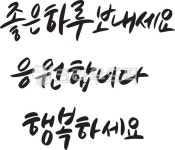 좋은하루보내세요
응원합니다
행복하세요